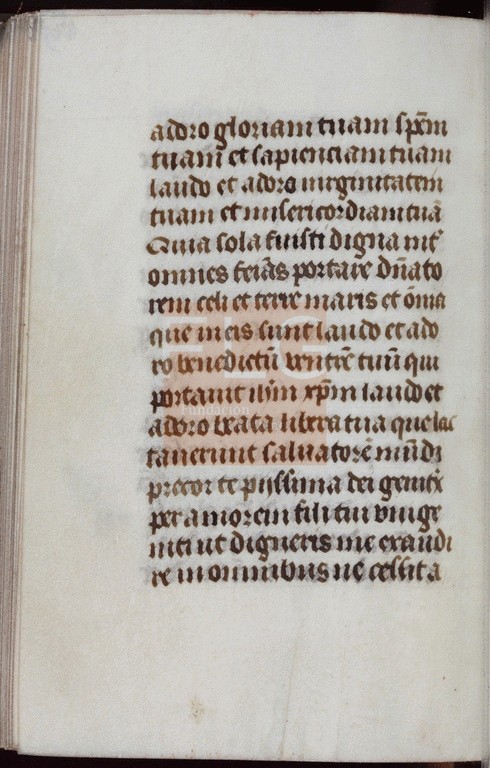 adoro gloriam tuam spẽm
tuam et sapienciam tuam
laudo et adoro uirginitatem
tuam et misericordiam tuã
Quia sola fuisti digna int̃
omnes feĩas portare dñato
rem celi et terre maris et õnia
que in eis sunt laudo et ado
ro benedictũ ventrẽ tuũ qui
portauit ihm̃ xp̃m laudo et
adoro beata libera tua que lac
tauerunt saluatorẽ mũdi
precor te piissima dei genitx̃
per amorem fili tui vnige
niti ut digneris me exaudi
re in omnibus ne cessita
FLG
Fundación